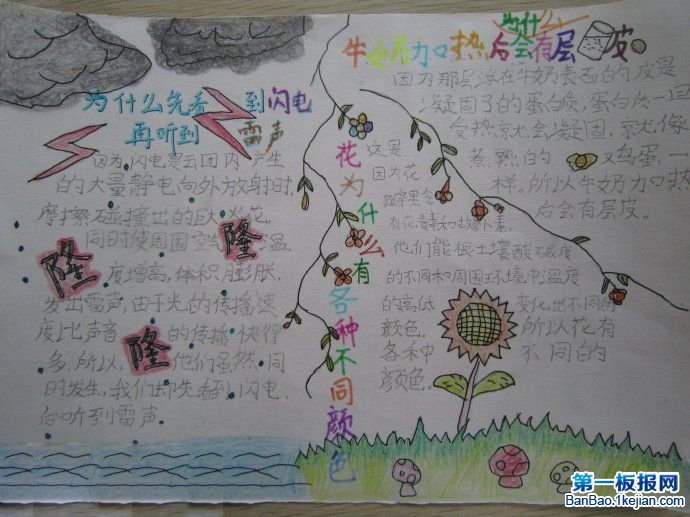 为什么先看到闪电
再听到雷声
因为闪电是云团内产生
的大量静电向外放射时,
摩擦碰撞出的巨大火花,
同时使周围空气中温
度增高,体积膨胀,
发出雷声,由于光的传播速
度比声音的传播快得
多,所以,他们虽然同
时发生,我们却先看到闪电,
后听到雷声。
隆
隆
隆
牛奶加口热后为什么会有层皮。
因为那层浮在牛奶表面的皮是
凝固了的蛋白质,蛋白质一旦
受热就会凝固,就像
煮熟的鸡蛋一
样。所以牛奶加热
后会有层皮。
花为什么有各种不同颜色
这是
因为花
瓣里含
有花青素和胡萝卜素,
他们能根土壤酸碱度
的不同和周围环境中温度
的高低变化出不同的
颜色。所以花有
各种不同的
颜色。
第一板报网
BanBao.1kejian.com